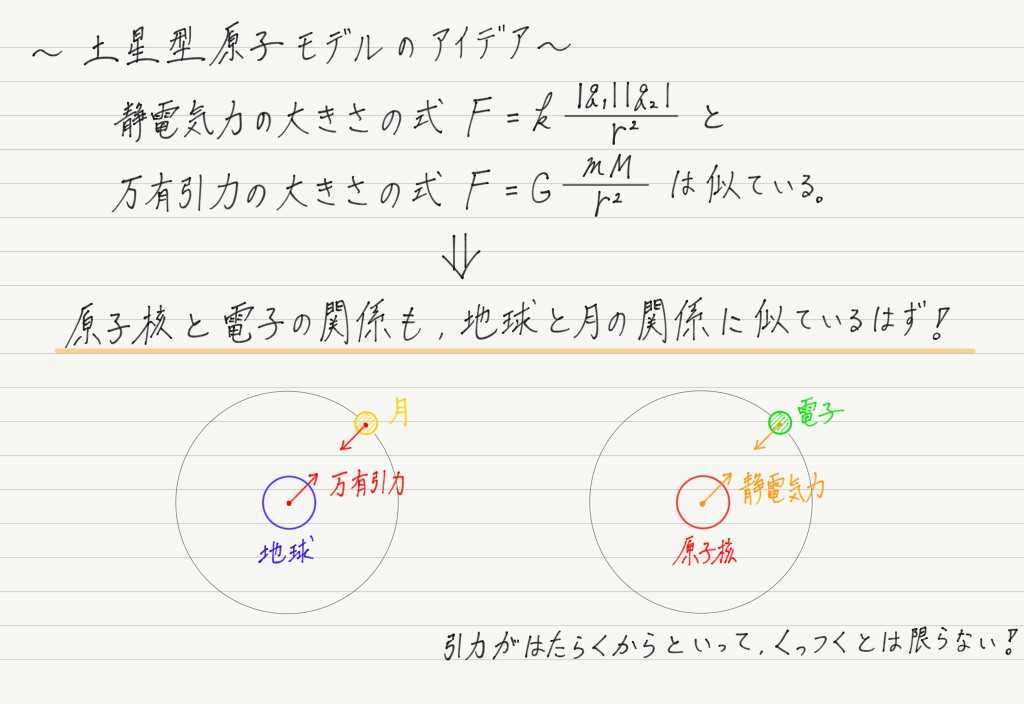 ～土星型原子モデルのアイデア～
静電気力の大きさの式 F = k |q₁||q₂| / r² と
万有引力の大きさの式 F = G mM / r² は似ている。
⇓
原子核と電子の関係も，地球と月の関係に似ているはず！
月
電子
万有引力
静電気力
地球
原子核
引力がはたらくからといって，くっつくとは限らない！